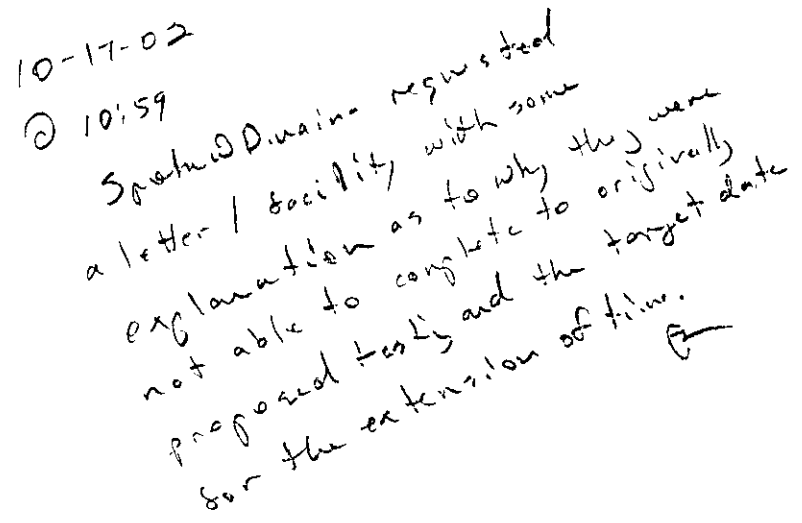 10-17-02
@ 10:59
Spoke w/ D. requested
a letter / facility with some
explanation as to why they were
not able to complete to originally
proposed testing and the target date
for the extension of time.